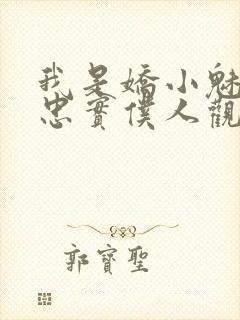 我是嬌小魅
忠實僕人觀
郭寶聖